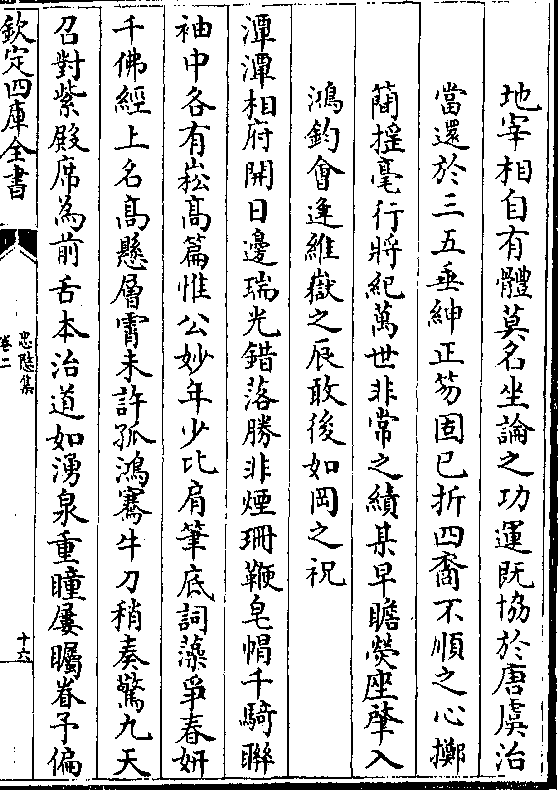 地宰相自有體莫名坐論之功運既協於唐虞治
當還於三五垂紳正笏固已折四裔不順之心擲
蕳揺毫行將紀萬世非常之績某早瞻熒座肇入
鴻鈞會逢維嶽之辰敢後如岡之祝
潭潭相府開日邊瑞光錯落勝非煙珊鞭皂帽千騎聨
袖中各有崧高篇惟公妙年少比肩筆底詞藻爭春妍
千佛經上名髙懸層霄未許孤鴻騫牛刀稍奏驚九天
召對紫殿席為前舌本治道如湧泉重瞳屢矚眷予偏
欽定四庫全書
忠隠集
卷二
十六